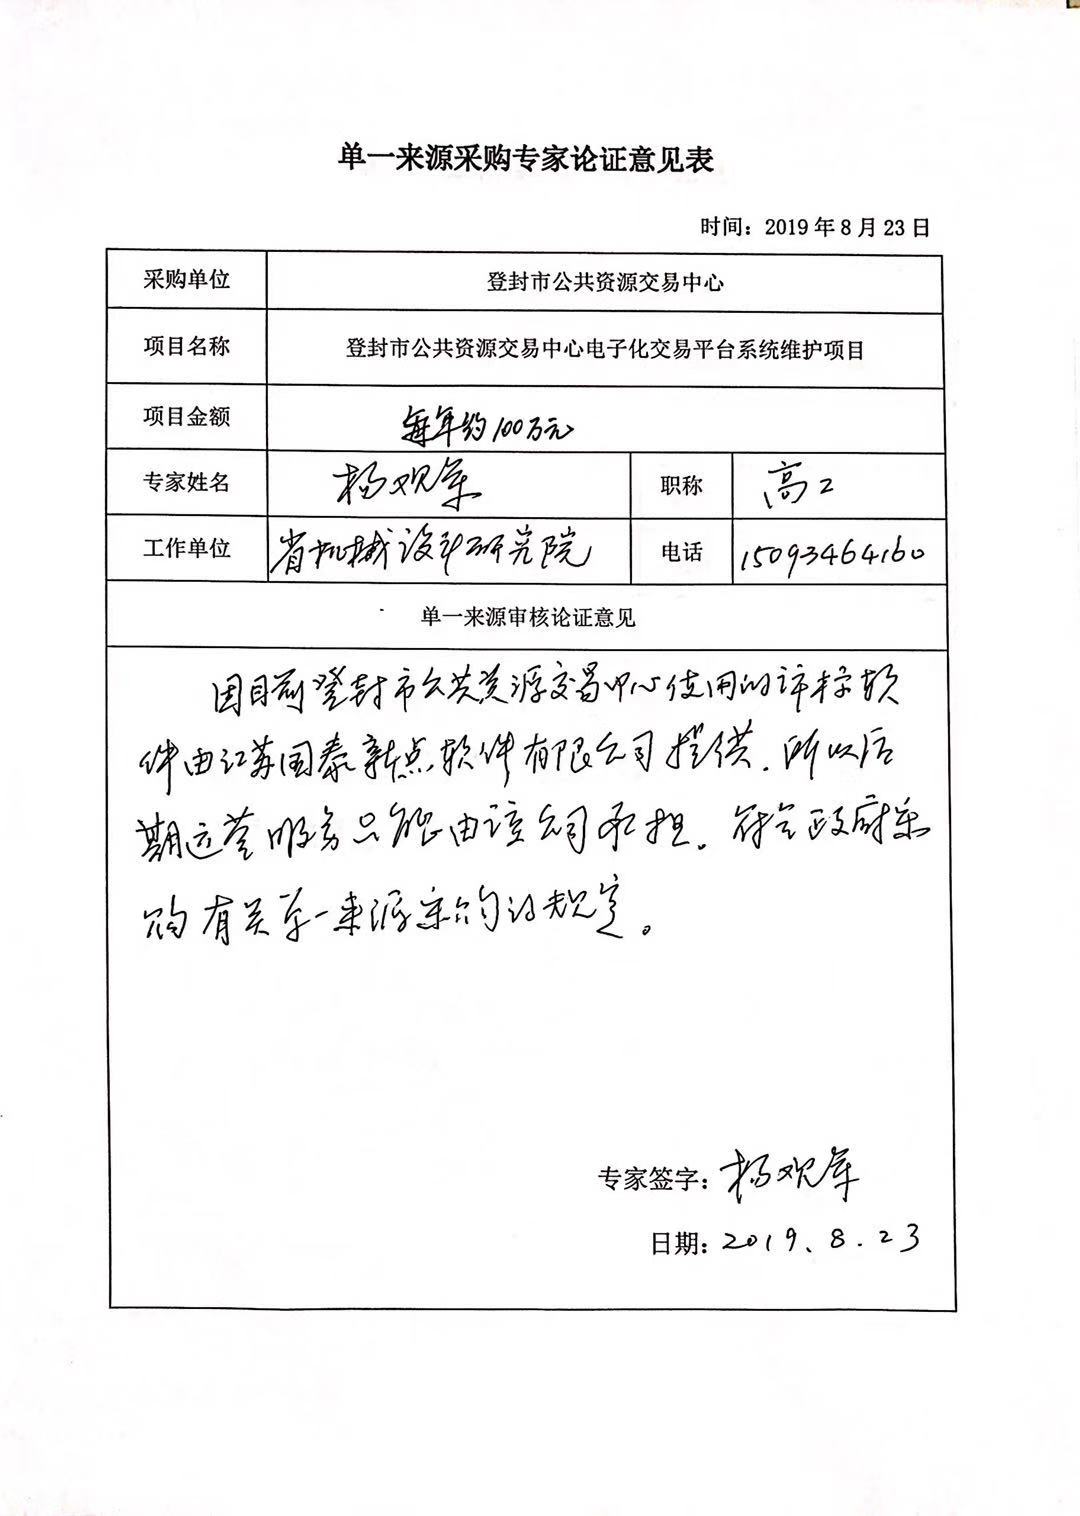 单一来源采购专家论证意见表
时间：2019年8月23日
采购单位 登封市公共资源交易中心
项目名称 登封市公共资源交易中心电子化交易平台系统维护项目
项目金额 每年约100万元
专家姓名 杨观军 职称 高工
工作单位 省机械设计研究院 电话 15093464160
单一来源审核论证意见
因目前登封市公共资源交易中心使用的评标软
件由江苏国泰新点软件有限公司提供，所以后
期运营服务只能由该公司承担。符合政府采
购有关单一来源采购的规定。
专家签字：杨观军
日期：2019.8.23